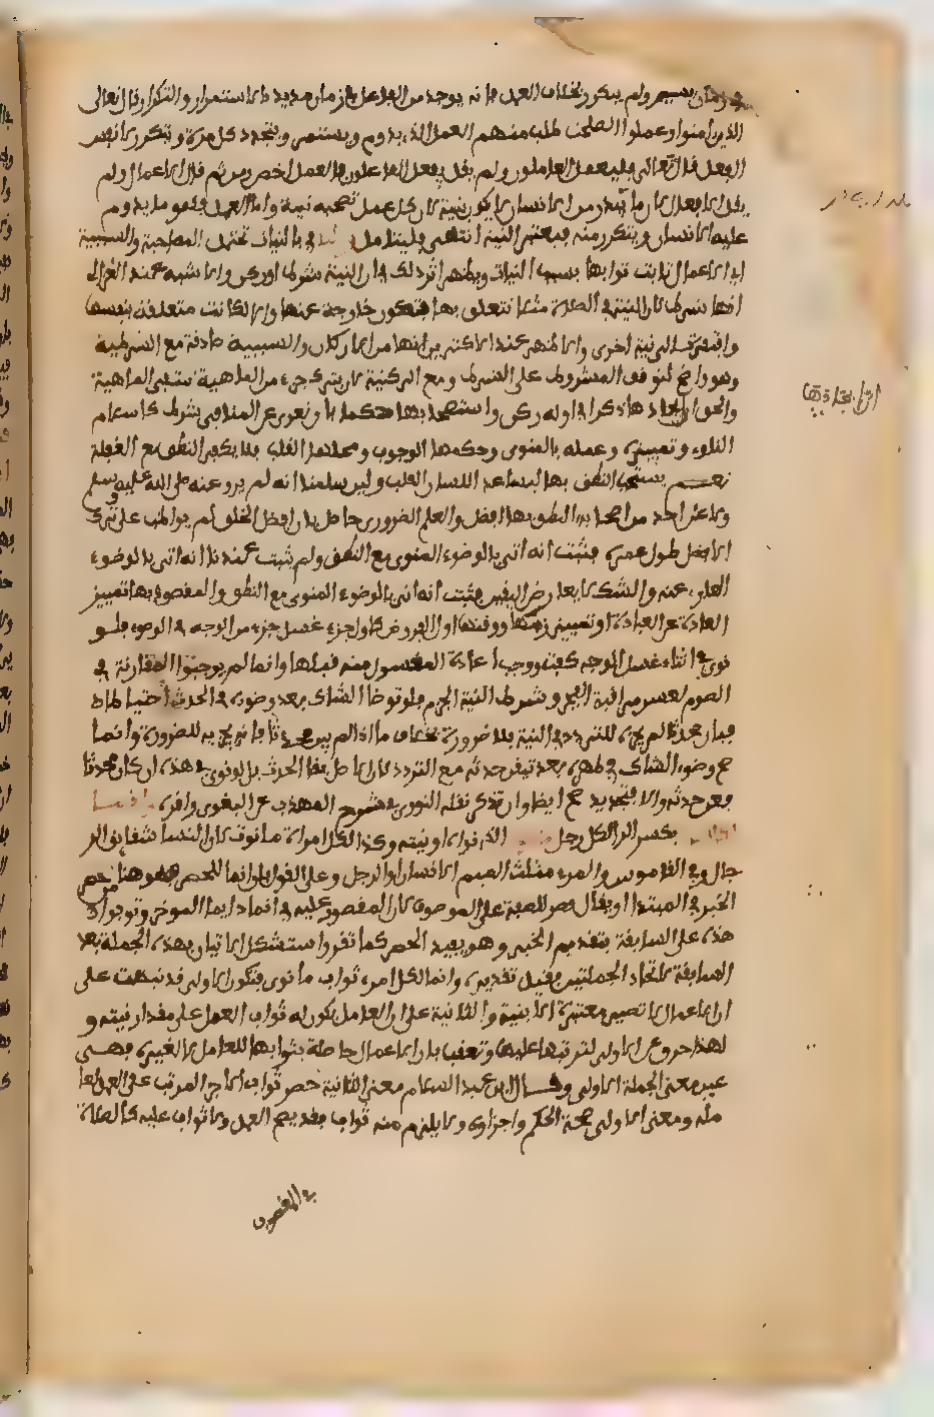 في زمان يسير ولم يتكرر بخلاف العمل فانه يوجد من الفاعل في زمان مديد بالاستمرار والتكرار قال تعالى
الذين امنوا وعملوا الصلحت طلب منهم العمل الذي يدوم ويستمر ويتجدد كل مرة ويتكرر لا نفس
الفعل قال تعالى فليعمل العاملون ولم يقل يفعل الفاعلون فالعمل اخص ومن ثم قال الاعمال ولم
يقل الافعال لان ما يندر من الانسان لا يكون بنية لان كل عمل تصحبه نية واما العمل فهو ما يدوم
عليه الانسان ويتكرر منه فيعتبر النية انتهى فليتامل بالنيات تحتمل المصاحبة والسببية
اي الاعمال ثابت ثوابها بسبب النيات ويظهر اثر ذلك في ان النية شرط او ركن والاشبه عند الغزالي
انها شرط لان النية في الصلاة مثلا تتعلق بها فتكون خارجة عنها والا لكانت متعلقة بنفسها
وافتقرت الى نية اخرى والاظهر عند الاكثرين انها من الاركان والسببية صادقة مع الشرطية
وهو واضح لتوقف المشروط على الشرط ومع الركنية لان بترك جزء من الماهية تنتفي الماهية
والحق ان ايجادها ذكرا في اوله ركن واستصحابها حكما بان تعرى عن المنافي شرط كاسلام
الناوي وتمييزه وعمله بالمنوي وحكمها الوجوب ومحلها القلب فلا يكفي النطق مع الغفلة
نعم يستحب النطق بها ليساعد اللسان القلب ولئن سلمنا انه لم يرو عنه صلى الله عليه وسلم
ولا عن احد من اصحابه النطق بها افضل والعلم الضروري حاصل بان افضل الخلق لم يواظب على ترك
الافضل طول عمره فثبت انه اتى بالوضوء المنوي مع النطق ولم يثبت عندنا انه اتى بالوضوء
العاري عنه والشك لا يعارض اليقين فثبت انه اتى بالوضوء المنوي مع النطق والمقصود بها تمييز
العبادة عن العادة او تمييز رتبتها ووقتها اول الفروض كاول جزء غسل جزء من الوجه في الوضوء فلو
نوى في اثناء غسل الوجه كفت ووجب اعادة المغسول منه قبلها وانما لم يوجبوا المقارنة في
الصوم لعسر مراقبة الفجر وشرط النية الجزم فلو توضا الشاك بعد وضوءه في الحدث احتياطا
فبان محدثا لم يجزه للتردد في النية بلا ضرورة بخلاف ما اذا لم يبن محدثا فانه يجزيه للضرورة وانما
صح وضوء الشاك في طهره بعد تيقن حدثه مع التردد لان الاصل بقا الحدث بل لو نوى في هذه ان كان محدثا
فعن حدثه والا فتجديد صح ايضا وان تذكر نقله النووي في شرح المهذب عن البغوي واقره
بكسر الرا لكل رجل الذي نواه او نيته وكذا لكل امراة ما نوت لان النسا شقايق الر
جال وفي القاموس والمرء مثلث الميم الانسان او الرجل وعلى القول بان انما للحصر فهو هنا من حصر
الخبر في المبتدا او يقال قصر الصفة على الموصوف لان المقصور عليه في انما دايما الموخر وتوجوا
هذه على السابقة بتقديم الخبر وهو يفيد الحصر كما تقرر واستشكل الاتيان بهذه الجملة بعد
السابقة لاتحاد الجملتين فقيل تقديره وانما لكل امرء ثواب ما نوى فتكون الاولى قد نبهت على
ان الاعمال لا تصير معتبرة الا بنية والثانية على ان العامل يكون له ثواب العمل على مقدار نيته و
لهذا اخر عن الاولى لترتبها عليها وتعقب بان الاعمال حاصلة بثوابها للعامل لا لغيره فهي
عين معنى الجملة الاولى وقال ابن عبد السلام معنى الثانية حصر ثواب الاجر المرتب على العمل لعا
مله ومعنى الاولى صحة الحكم واجزاؤه ولا يلزم منه ثواب فقد يصح العمل ولا ثواب عليه كالصلاة
في المغصوب